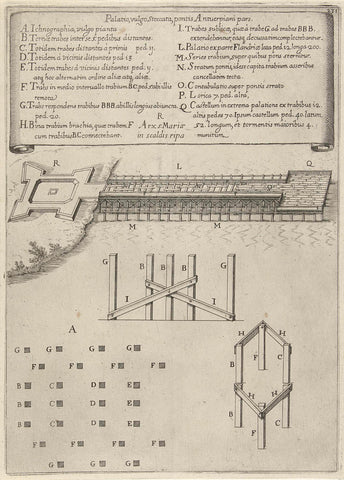 Palatia, vulgo, Steccata, pontis Antuerpiani pars.
A. Ichnographia, vulgo pianta
B. Ternæ trabes inter se x. pedibus distantes.
C. Totidem trabes distantes a primis ped. 9.
D. Totidem à vicinis distantes ped. 18
E. Totidem trabes à vicinis distantes ped. 9.
atq; hoc alternatim ordine aliæ atq; aliæ.
F. Trabs in medio intervallo trabium B.C. ped.
remota
G. Trabs respondens tribus BBB. ab illis longius obiuncta
ped. 20.
H. Bina trabium brachia, quæ trabem F
cum trabibus B.C. connectebant.
I. Trabes subiectæ, quæ à trabe G ad trabes BBB.
extendebantur, easq; decussatim complectebantur.
L. Palatio ex parte Flandriæ
M. Series trabium, super quibus pons sternitur.
N. Stratum pontis, ad ex capita trabium asseribus
cancellatim tecta.
O. Contabulatio super pontis strato
P. Lorica 5. ped. alta.
Q. Castellum in extrema palatione ex trabibus 12.
altis pedes 70. Ipsum castellum ped. 40. latum,
52. longum, et tormentis maioribus 4.
munitum.
R
Arx S. Mariæ
in scaldis ripa
R L Q
M M
G B B B G
I I
A
G G G G
F F F F
B C D E
B C D E
B C D E
F F F F
G G G
H H
B F C
H H
B F C